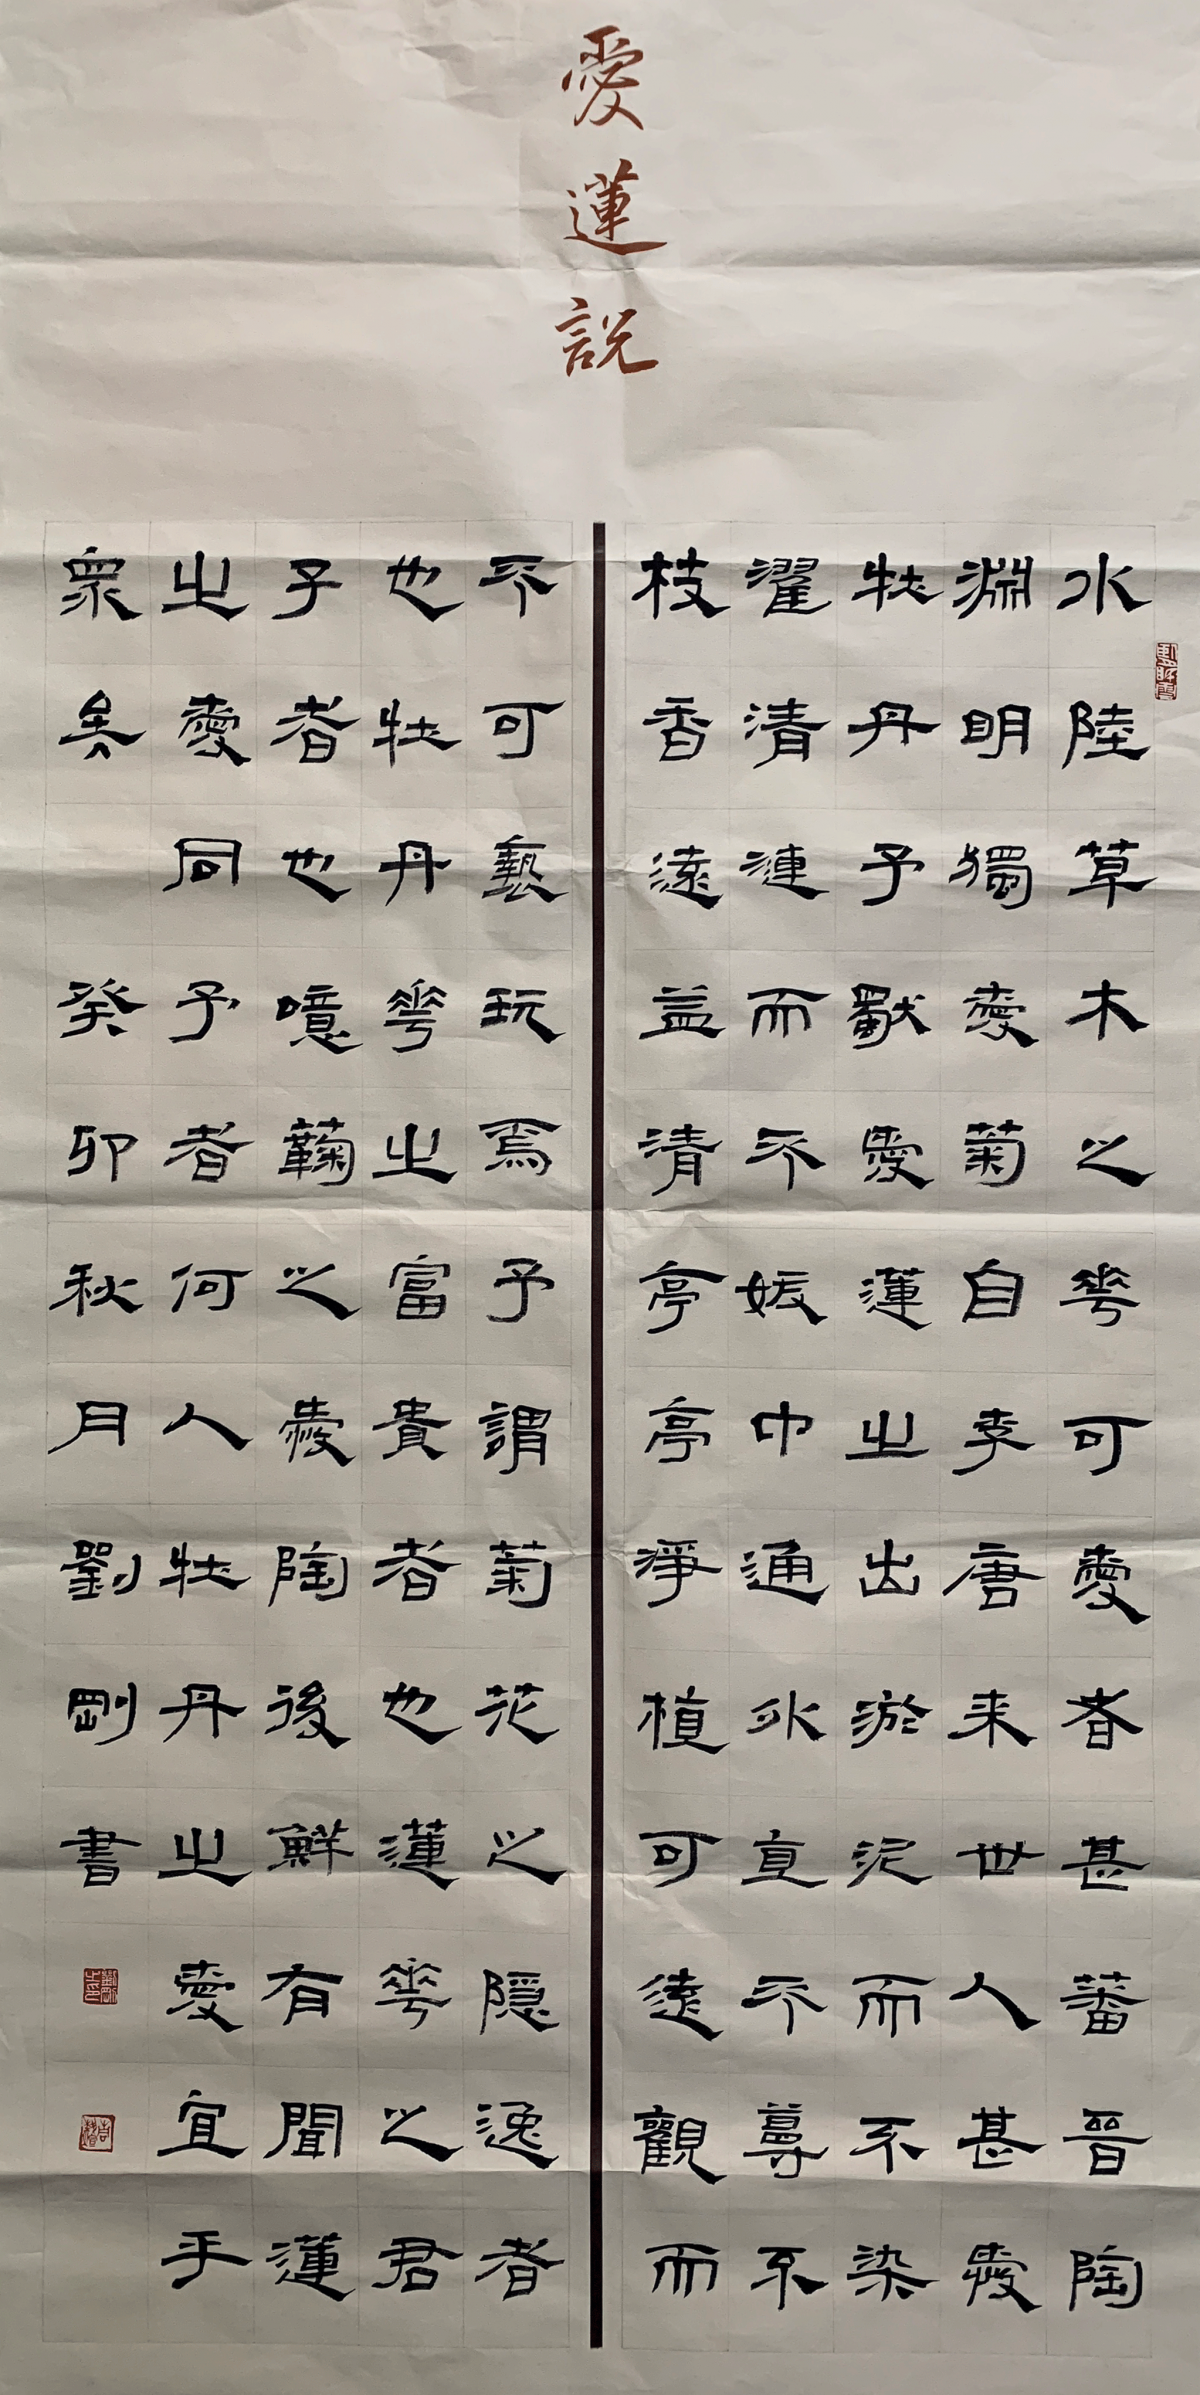 愛蓮説
水陸草木之華可愛者甚蕃晉陶
淵明獨愛菊自李唐来世人甚愛
牡丹予獨愛蓮之出淤泥而不染
濯清漣而不妖中通外直不蔓不
枝香遠益清亭亭淨植可遠觀而
不可褻玩焉予謂菊花之隱逸者
也牡丹華之富貴者也蓮華之君
子者也噫鞠之愛陶後鮮有聞蓮
之愛同予者何人牡丹之愛宜乎
衆矣 癸卯秋月劉剛書